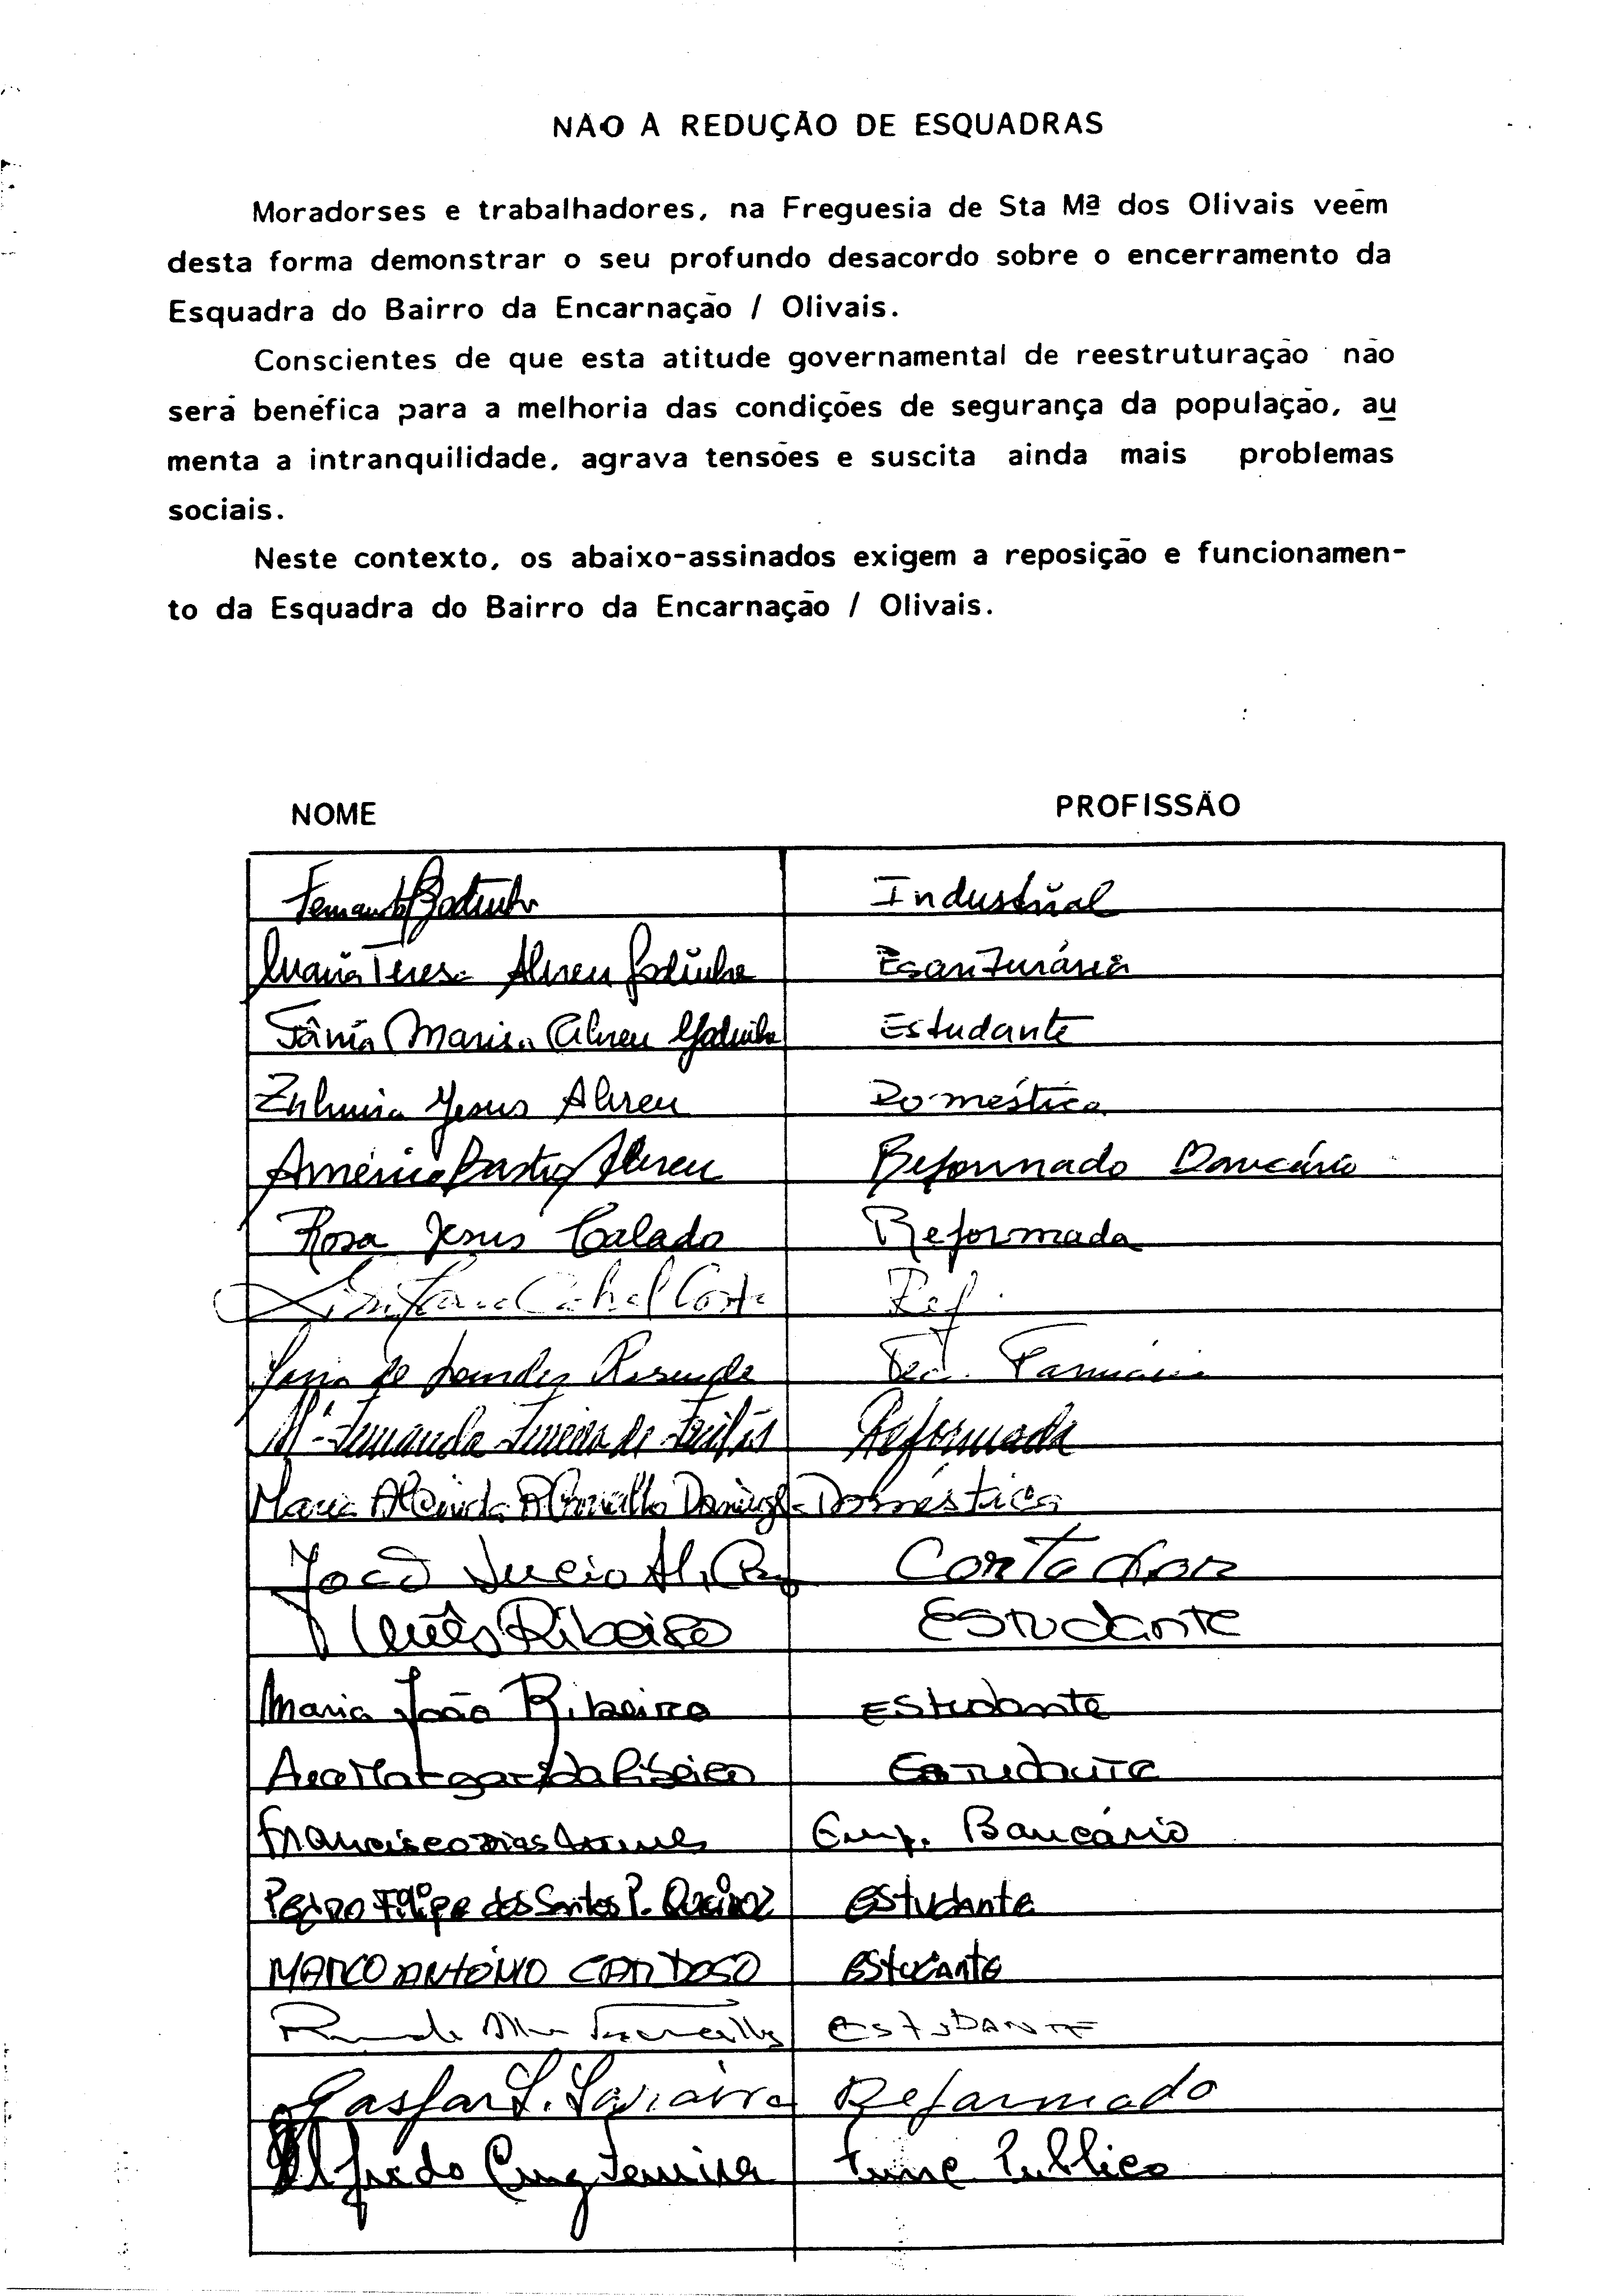 NÃO A REDUÇÃO DE ESQUADRAS
Moradorses e trabalhadores, na Freguesia de Sta Mª dos Olivais veêm
desta forma demonstrar o seu profundo desacordo sobre o encerramento da
Esquadra do Bairro da Encarnação / Olivais.
Conscientes de que esta atitude governamental de reestruturação não
será benéfica para a melhoria das condições de segurança da população, au
menta a intranquilidade, agrava tensões e suscita ainda mais problemas
sociais.
Neste contexto, os abaixo-assinados exigem a reposição e funcionamen-
to da Esquadra do Bairro da Encarnação / Olivais.
NOME PROFISSÃO
Fernando Godinho Industrial
Maria Teresa Abreu Godinho Escriturária
Tânia Marisa Abreu Godinho Estudante
Zulmira Jesus Abreu Doméstica
Américo Bastos Abreu Reformado Bancário
Rosa Jesus Calado Reformada
Costa Ref.
Maria de Lourdes Resende Tec. Farmácia
Mª Fernanda de Freitas Reformada
Maria Alcinda Carvalho Doméstica
João Lucio Contador
Inês Ribeiro Estudante
Maria João Ribeiro Estudante
Ana Margarida Ribeiro Estudante
Francisco Dias Emp. Bancário
Pedro Filipe dos Santos P. Queiroz Estudante
MARCO ANTÓNIO CARDOSO Estudante
ESTUDANTE
Gaspar L. Saraiva Reformado
Alfredo Cruz Ferreira Func Publico